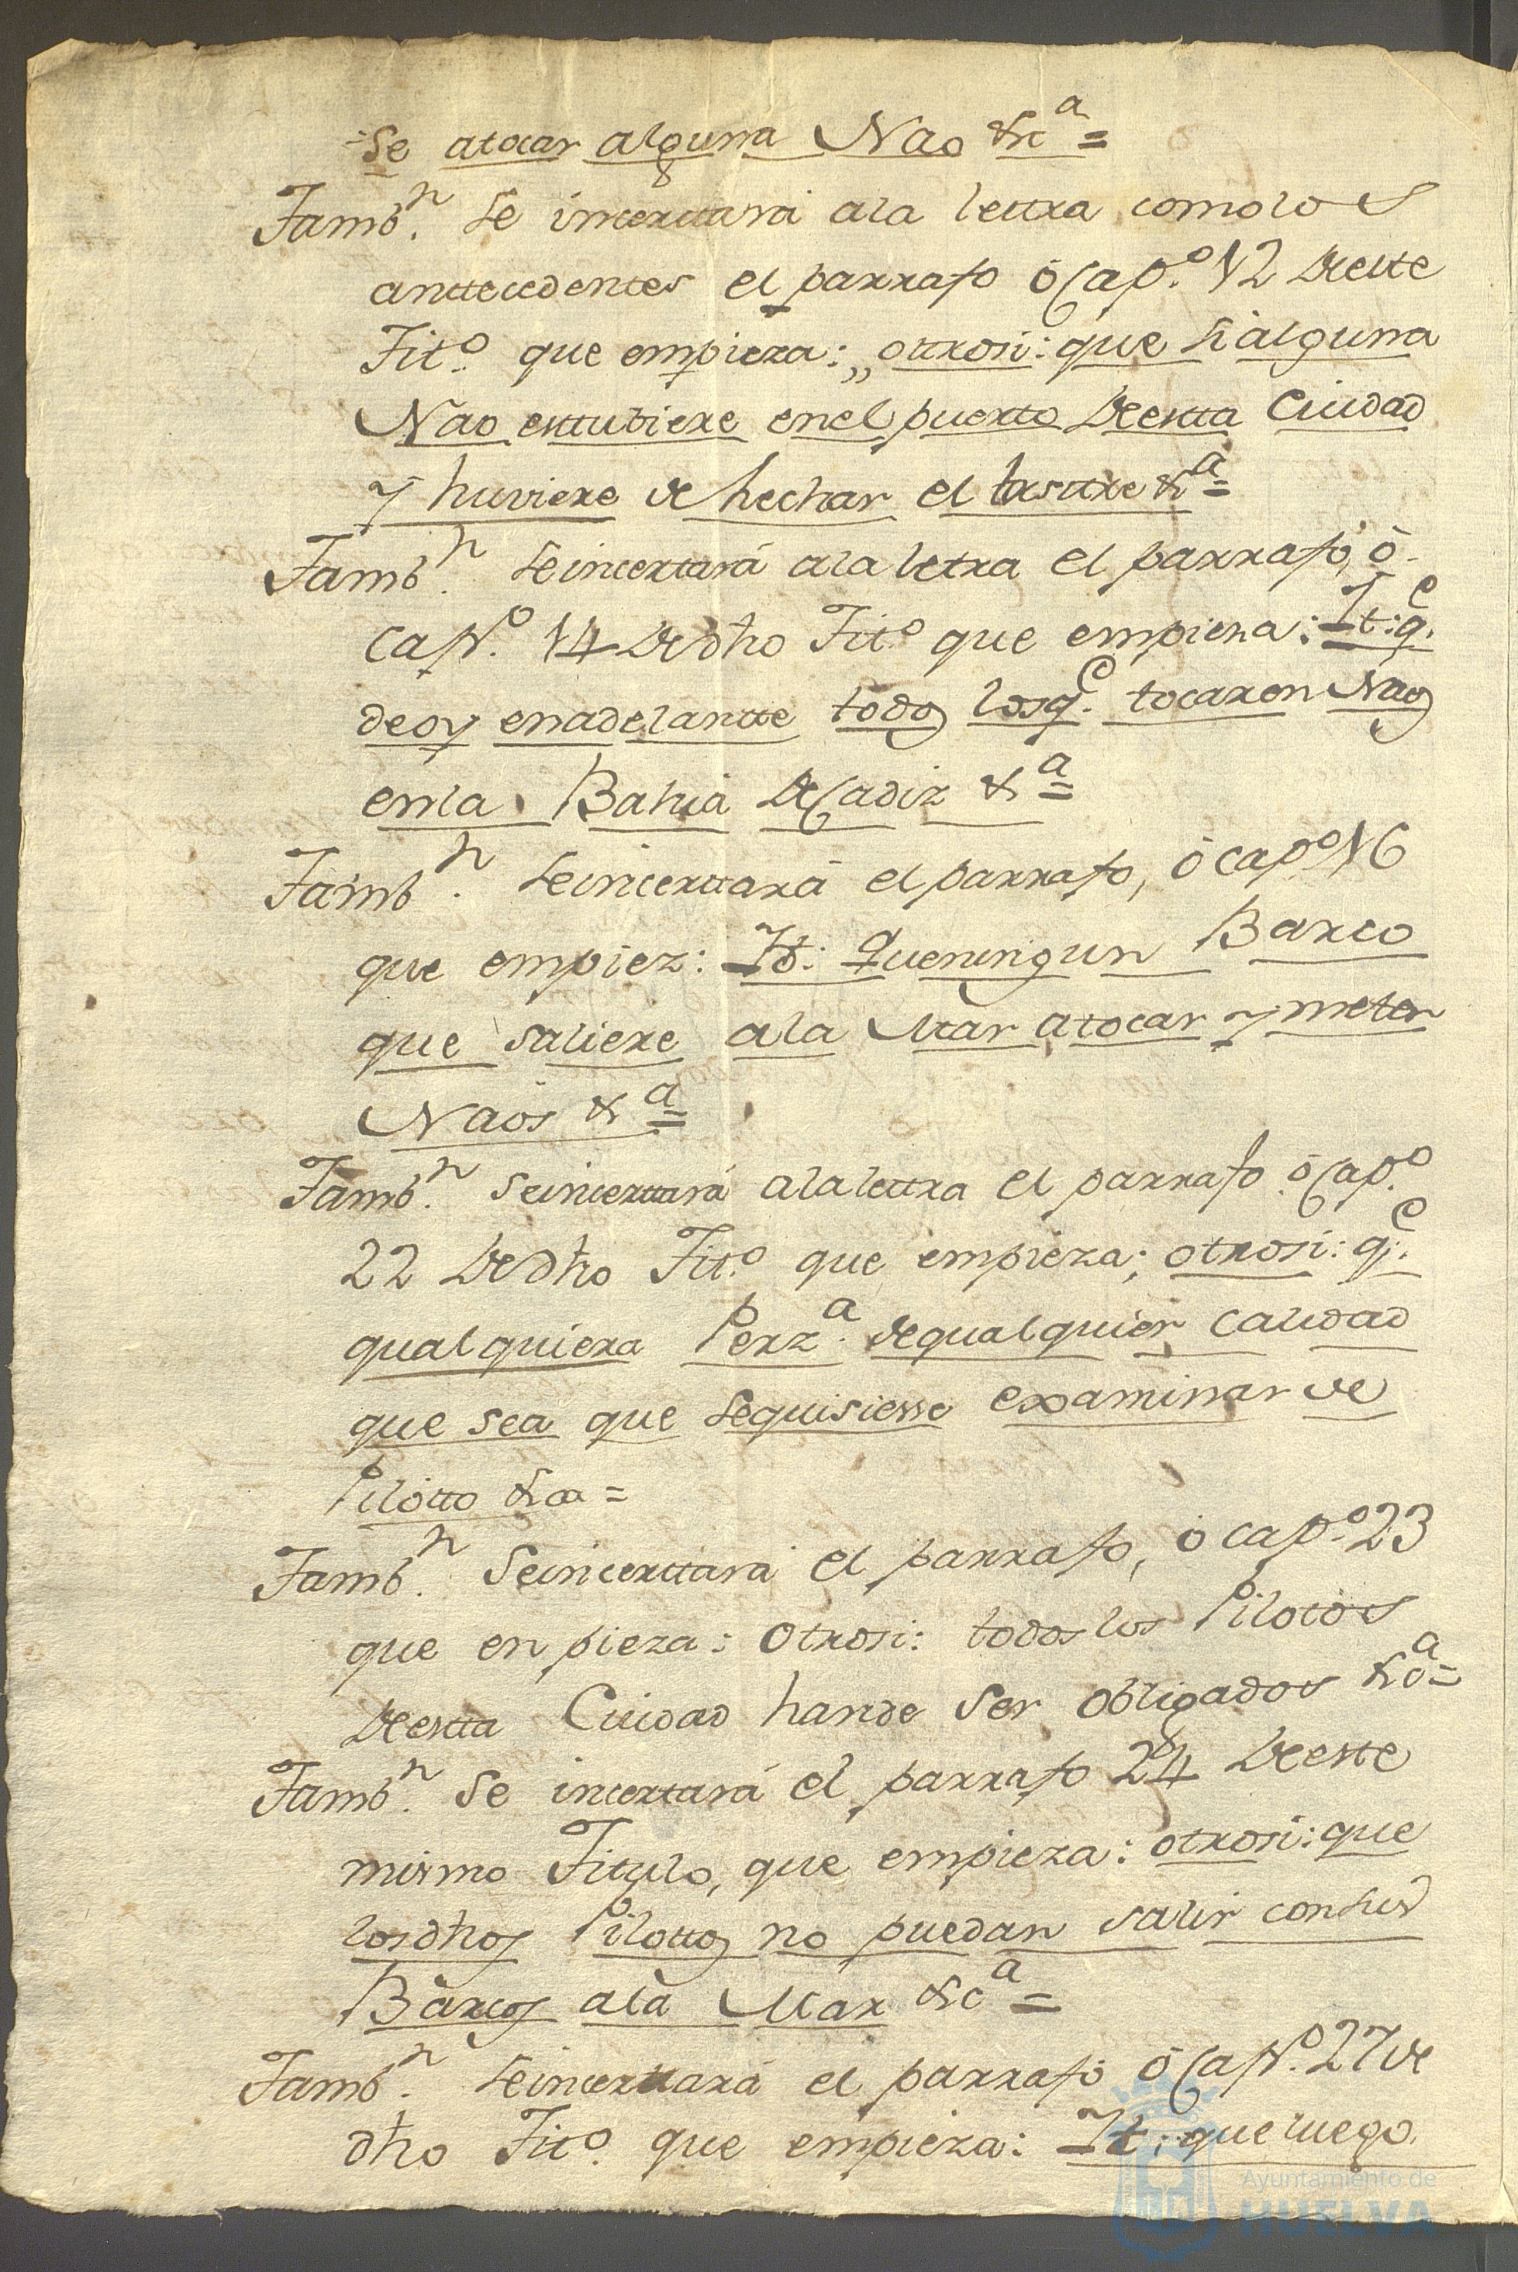 se atocar alguna Nao &cª=
Tambⁿ. se incerttará ala lettra como los
anttecedentes el parrafo ó Cap.º 12 deeste
Tit.º que empieza: „ ottrosi: que si alguna
Nao esttubiere enel puerto deestta Ciudad
y huviere de hechar el lasttre &ª=
Tambⁿ. seincertará ala letra el parrafo, ò
Cap.º 14 de dho Tit.º que empieza: It: q.ᵉ
deoy enadelantte todos losq.ᵉ tocaren Naos
enla Bahia de Cadiz &ª=
Tambⁿ. seincerttará el parrafo, ó cap.º 16
que empiez: It: Queningun Barco
que saliere ala Mar atocar y meter
Naos &ª=
Tambⁿ. seincerttará ala lettra el parrafo ó Cap.º
22 de dho Tit.º que empieza; otrosi: q.ᵉ
qualquiera Perz.ª dequalquier calidad
que sea que sequisiesse examinar de
Pilotto &ca=
Tambⁿ. seincerttará el parrafo, ó cap.º 23
que enpieza: Otrosi: todos los Pilotos
deestta Ciudad hande ser obligados &cª=
Tambⁿ. se incertará el parrafo 24 deeste
mismo Titulo, que empieza: otrosi: que
losdhos Pilottos no puedan salir consus
Barcos ala Mar &cª=
Tambⁿ. seincerttará el parrafo ó Cap.º 27 de
dho Tit.º que empieza: It: queluego
Ayuntamiento de
HUELVA